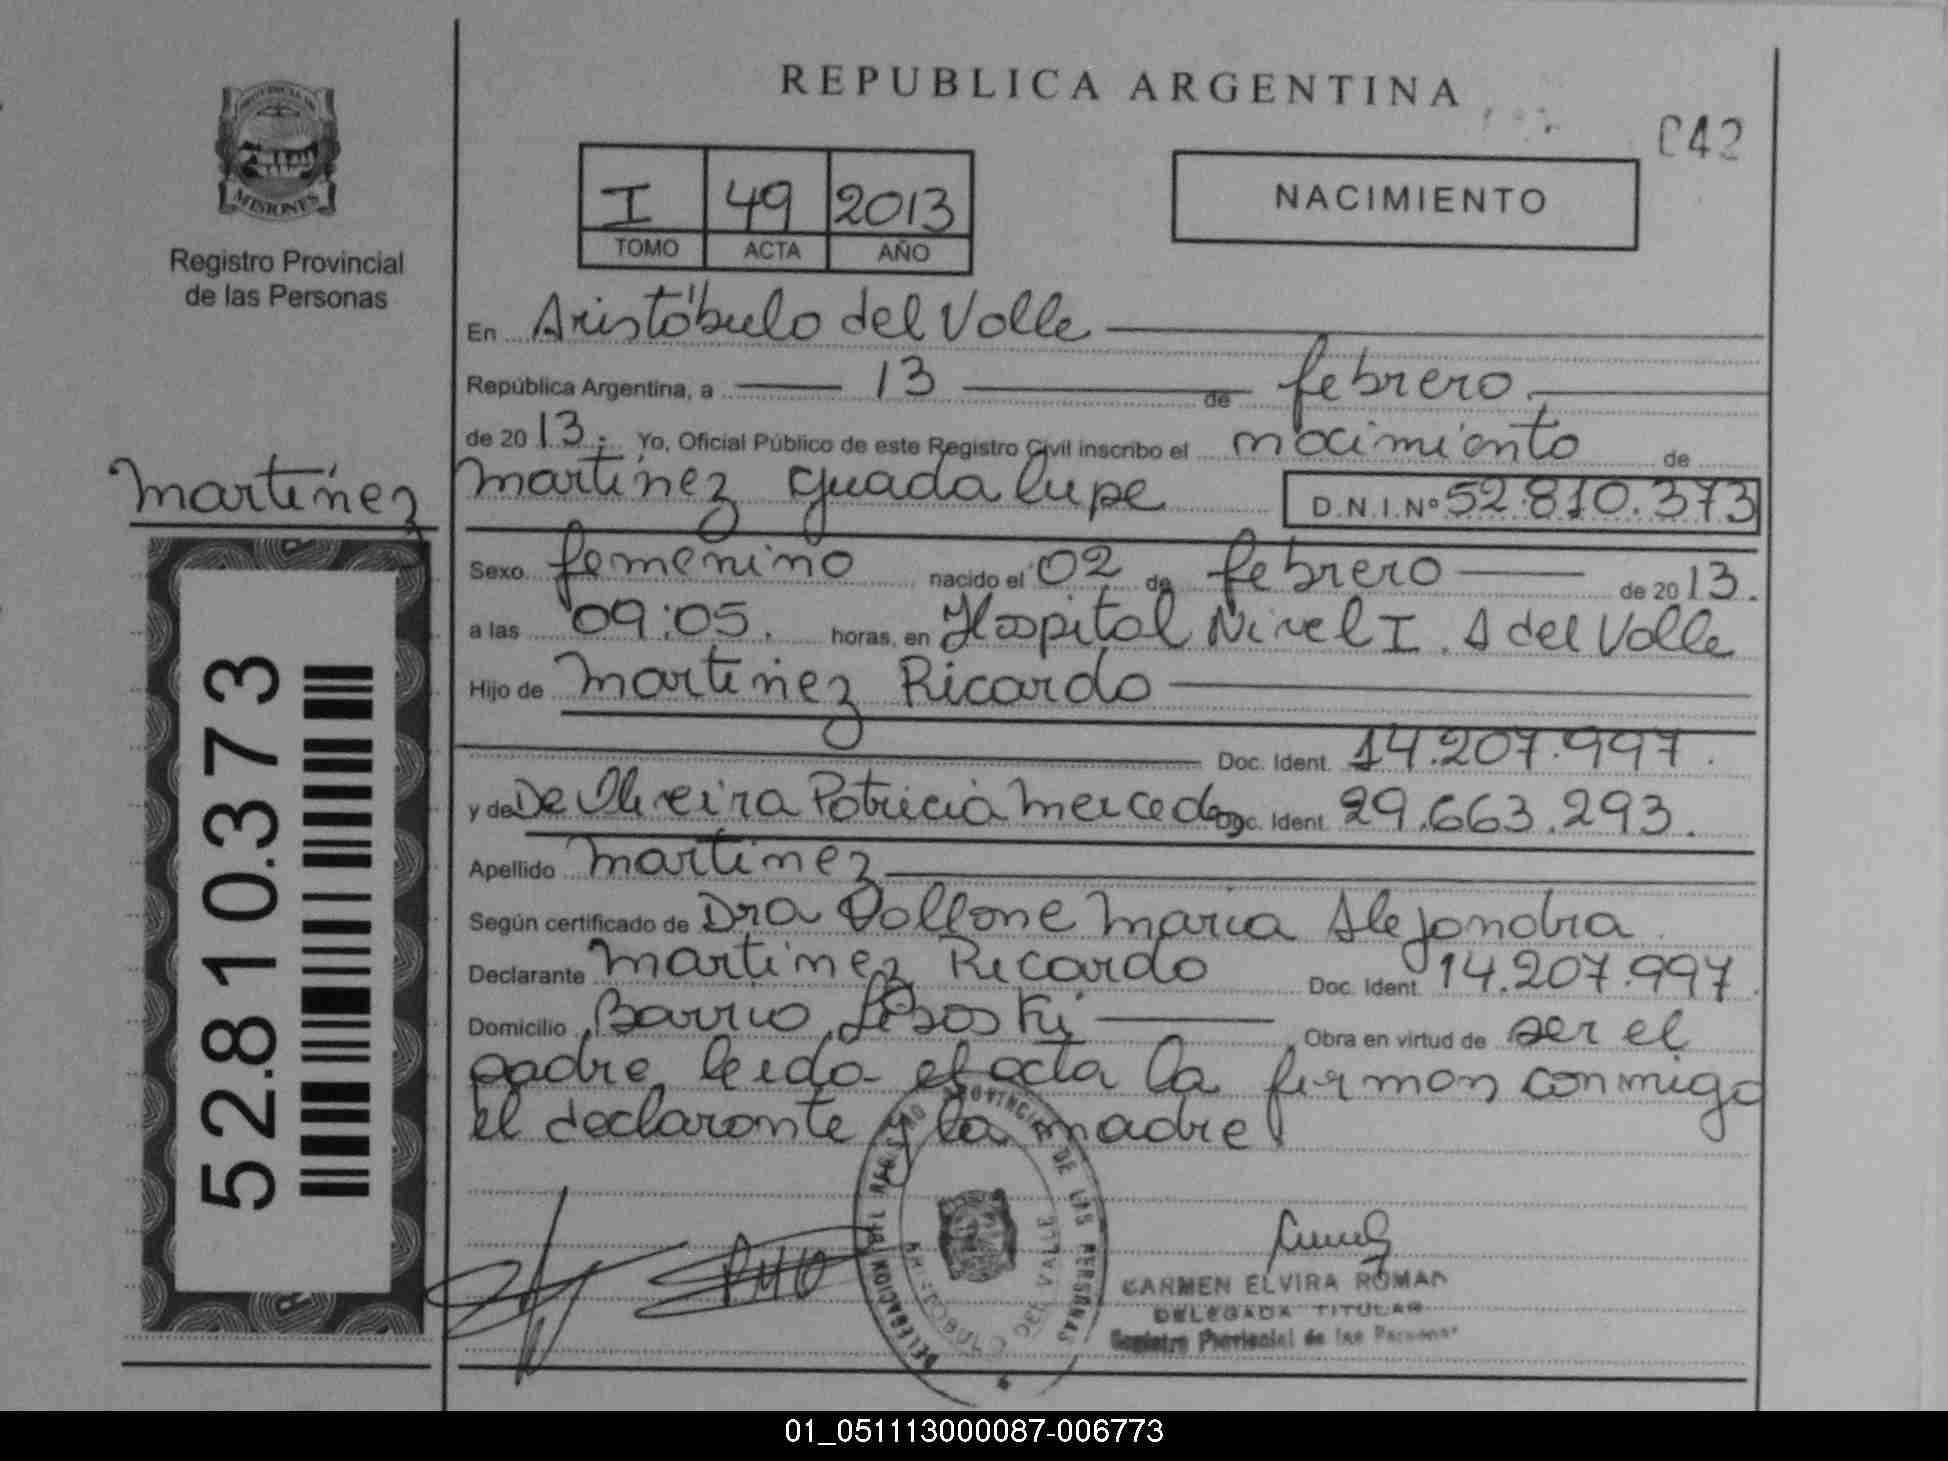 REPUBLICA ARGENTINA
C42
PROVINCIA DE
MISIONES
Registro Provincial
de las Personas
I 49 2013
TOMO ACTA AÑO
NACIMIENTO
En Aristóbulo del Valle
República Argentina, a 13 de febrero
de 2013. Yo, Oficial Público de este Registro Civil inscribo el nacimiento de
martinez
martinez guadalupe D.N.I.Nº 52.810.373
Sexo femenino nacido el 02 de febrero de 2013.
a las 09:05. horas, en Hospital Nivel I. A del Valle
Hijo de martinez Ricardo
Doc. Ident. 14.207.997.
y de De Oliveira Patricia Mercedes Doc. Ident. 29.663.293.
Apellido martinez
Según certificado de Dra Maria Alejandra
Declarante Martinez Ricardo Doc. Ident. 14.207.997
Domicilio Barrio Obra en virtud de ser el
padre, leida el acta la firman conmigo
el declarante y la madre
52.810.373
DELEGACION DEL REGISTRO PROVINCIAL DE LAS PERSONAS
ARISTOBULO DEL VALLE
CARMEN ELVIRA ROMAN
DELEGADA TITULAR
Registro Provincial de las Personas
01_051113000087-006773